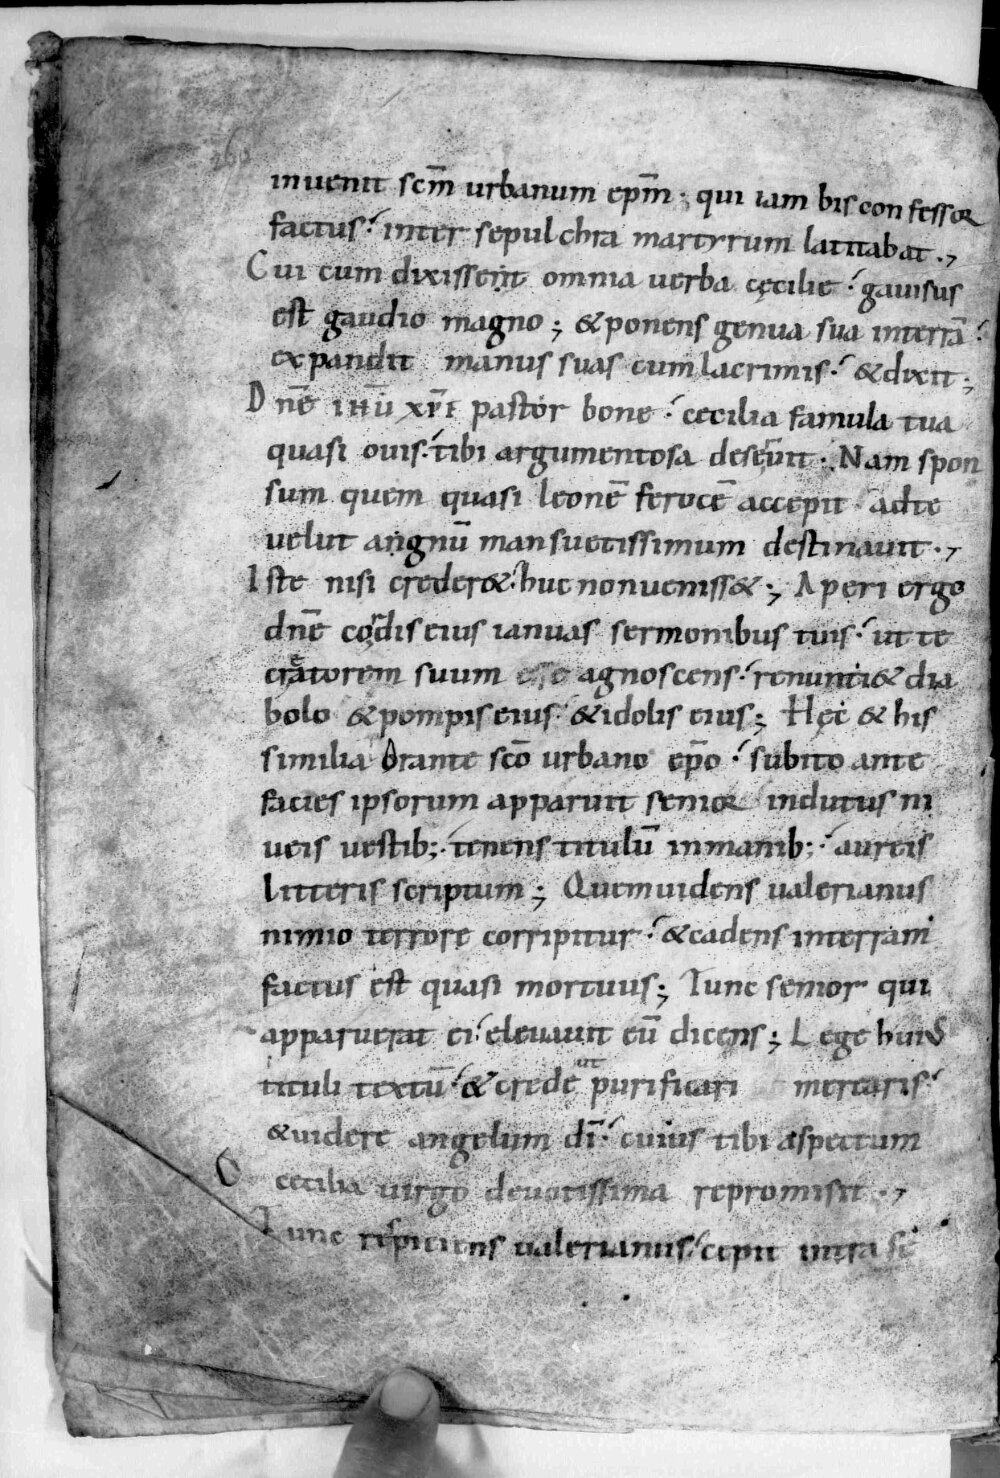 inuenit scm̄ urbanum ep̄m· qui iam bis confessor
factus·́ inter sepulchra martyrum latitabat·,
Cui cum dixissent omnia uerba cęcilie·́ gauisus
est gaudio magno; & ponens genua sua interrā·́
expandit manus suas cum lacrimis·́ & dixit;
Dnē ihū xp̄i pastor bone·́ cecilia famula tua
quasi ouis·́ tibi argumentosa deseruit· Nam spon
sum quem quasi leonē ferocē accepit adte
uelut angnū mansuetissimum destinauit·,
Iste nisi creder&·́ huc nonueniss&; Aperi ergo
dnē cordis eius ianuas sermonibus tuis·́ ut te
creatorem suum esse agnoscens·́ renunti& dia
bolo & pompis eius·́ & idolis eius; Hęc & his
similia Orante scō urbano ep̄o·́ subito ante
facies ipsorum apparuit senior indutus ni
ueis uestib;·́ tenens titulū inmanib;·́ aureis
litteris scriptum; Quem uidens ualerianus
nimio terrore corripitur·́ & cadens interram
factus est quasi mortuus; Tunc senior qui
apparuerat ei·́ eleuauit eū dicens; Lege huius
tituli textū·́ & crede ut purificari merearis·́
& uidere angelum dī·́ cuius tibi aspectum
cecilia uirgo deuotissima repromisit·,
Tunc respiciens ualerianus·́ cepit intra se